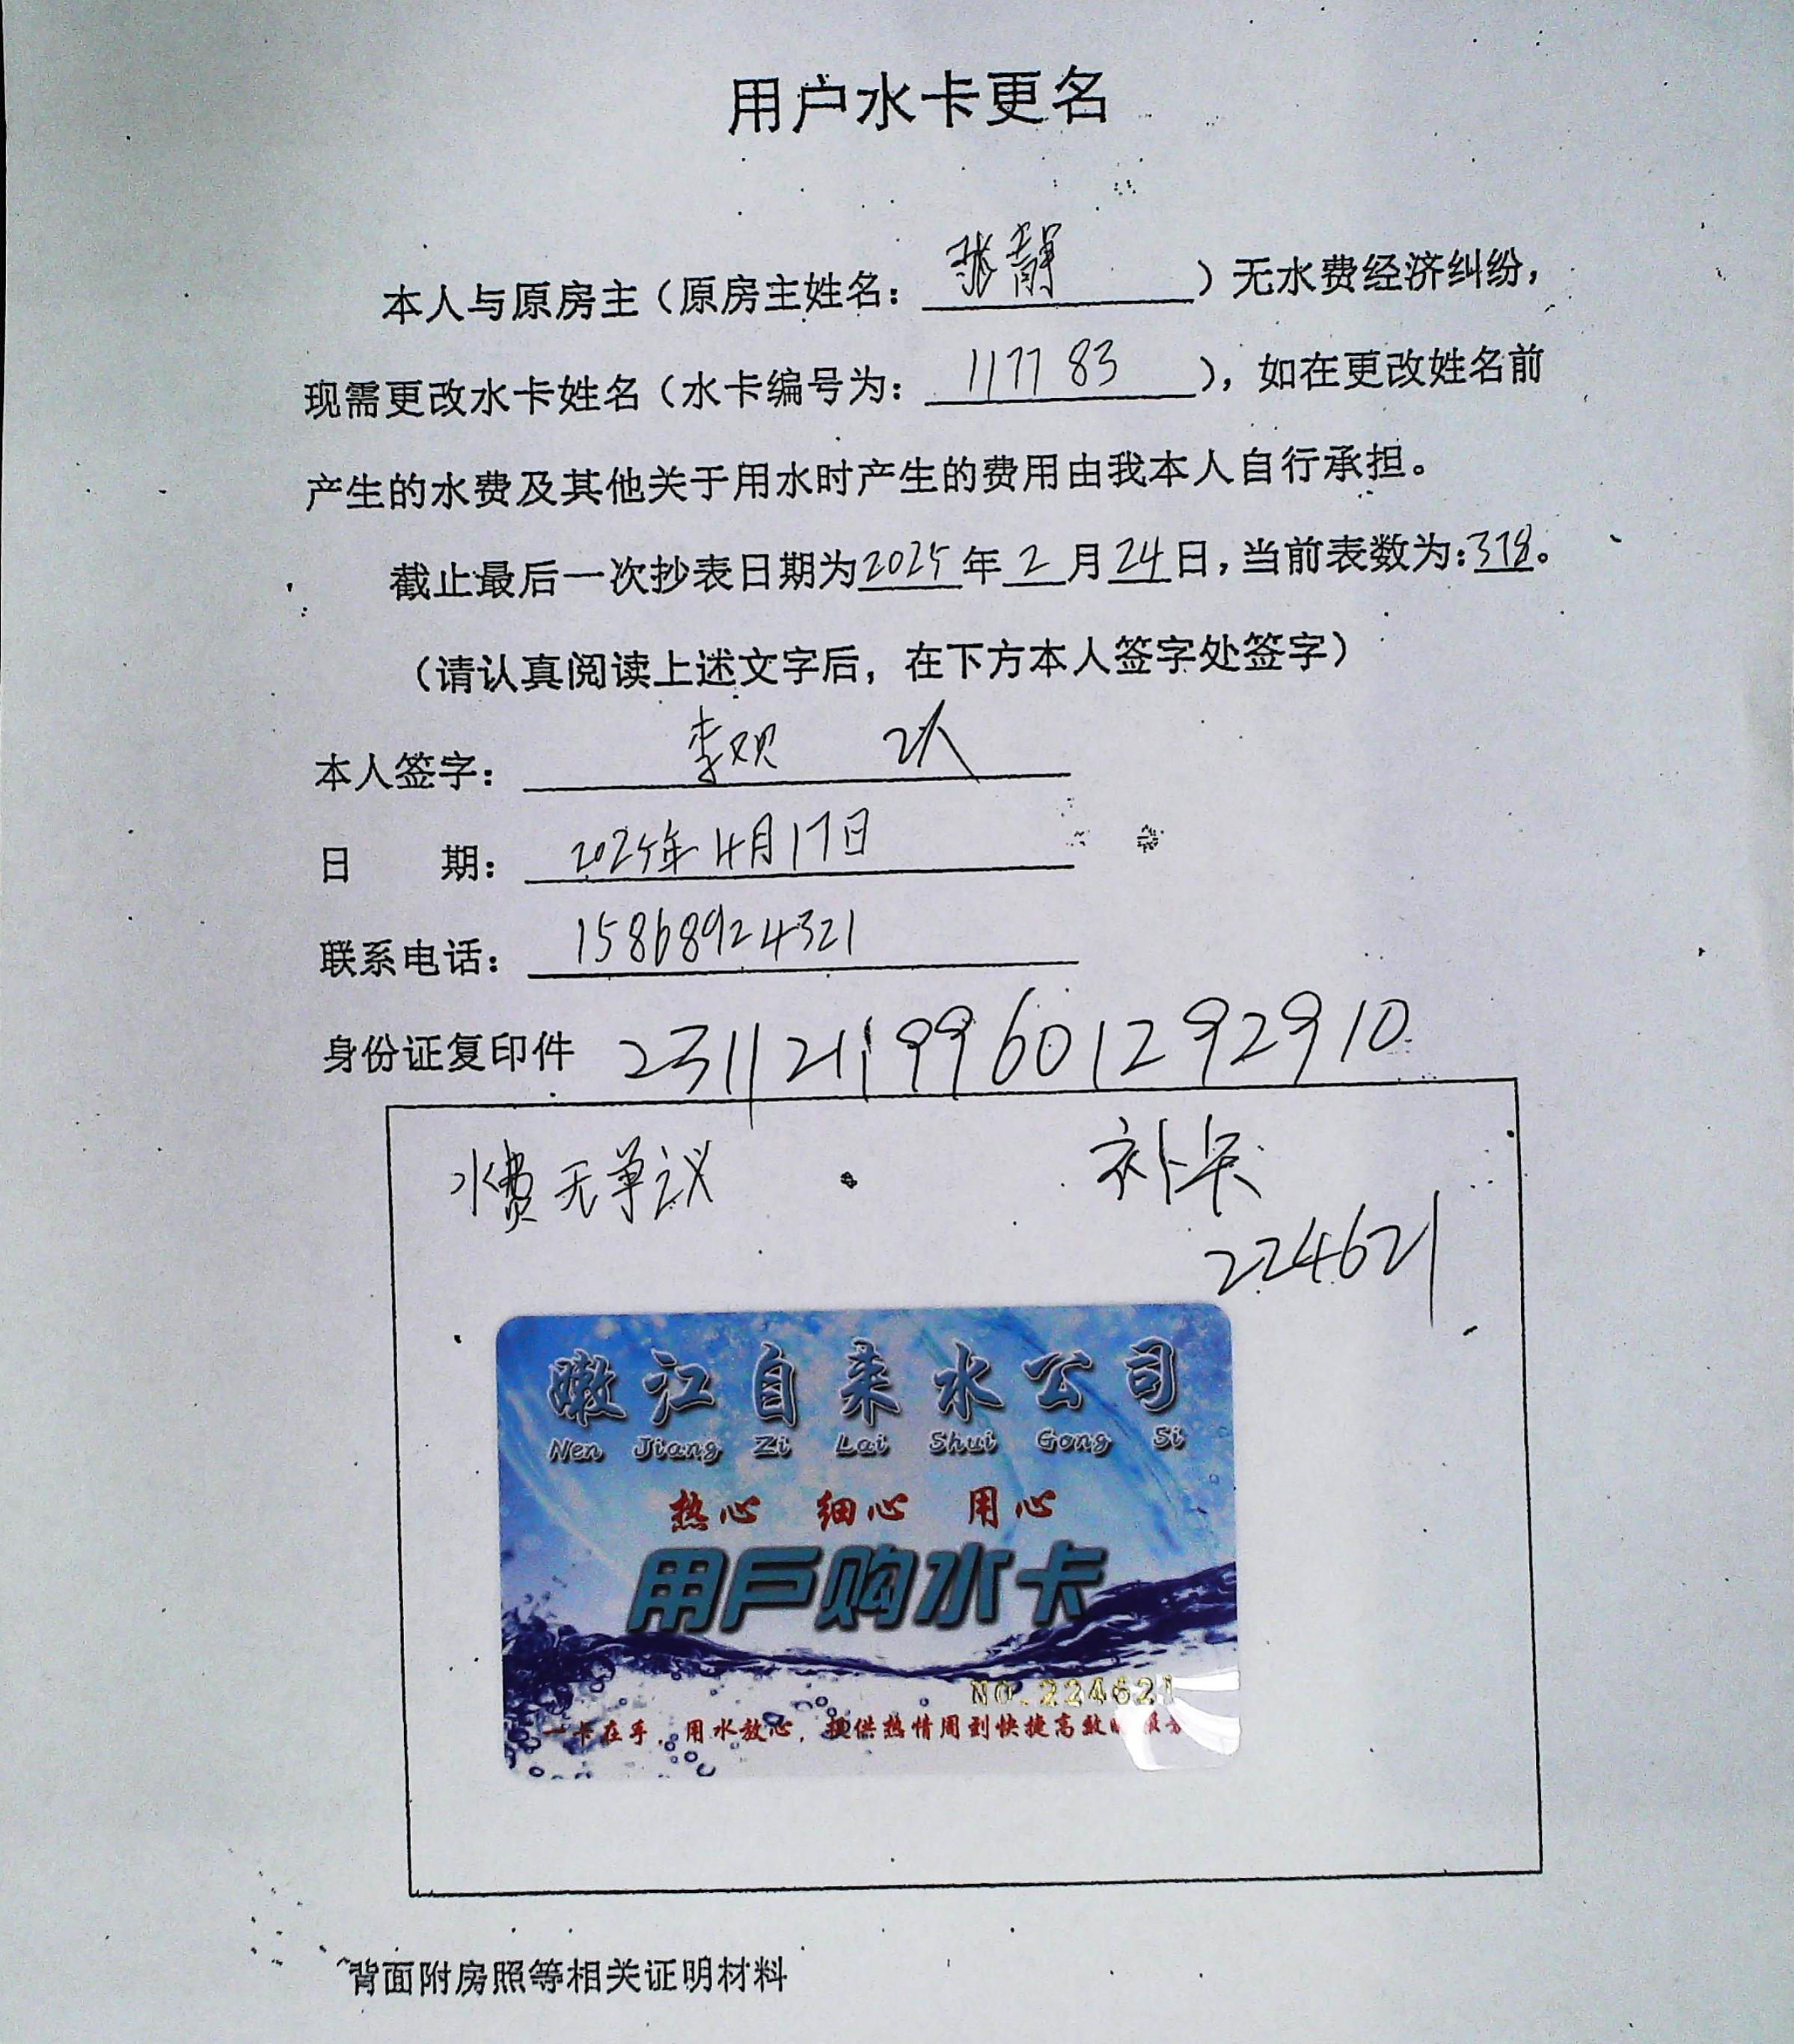 用户水卡更名
本人与原房主（原房主姓名：张静）无水费经济纠纷，
现需更改水卡姓名（水卡编号为：117783），如在更改姓名前
产生的水费及其他关于用水时产生的费用由我本人自行承担。
截止最后一次抄表日期为2025年2月24日，当前表数为：378。
（请认真阅读上述文字后，在下方本人签字处签字）
本人签字：李观
日 期：2025年4月17日
联系电话：15868924321
身份证复印件 231121199601292910
水费无争议 补卡
224621
嫩江自来水公司
Nen Jiang Zi Lai Shui Gong Si
热心 细心 用心
用户购水卡
NO.224621
一卡在手，用水放心，提供热情周到快捷高效的服务
背面附房照等相关证明材料